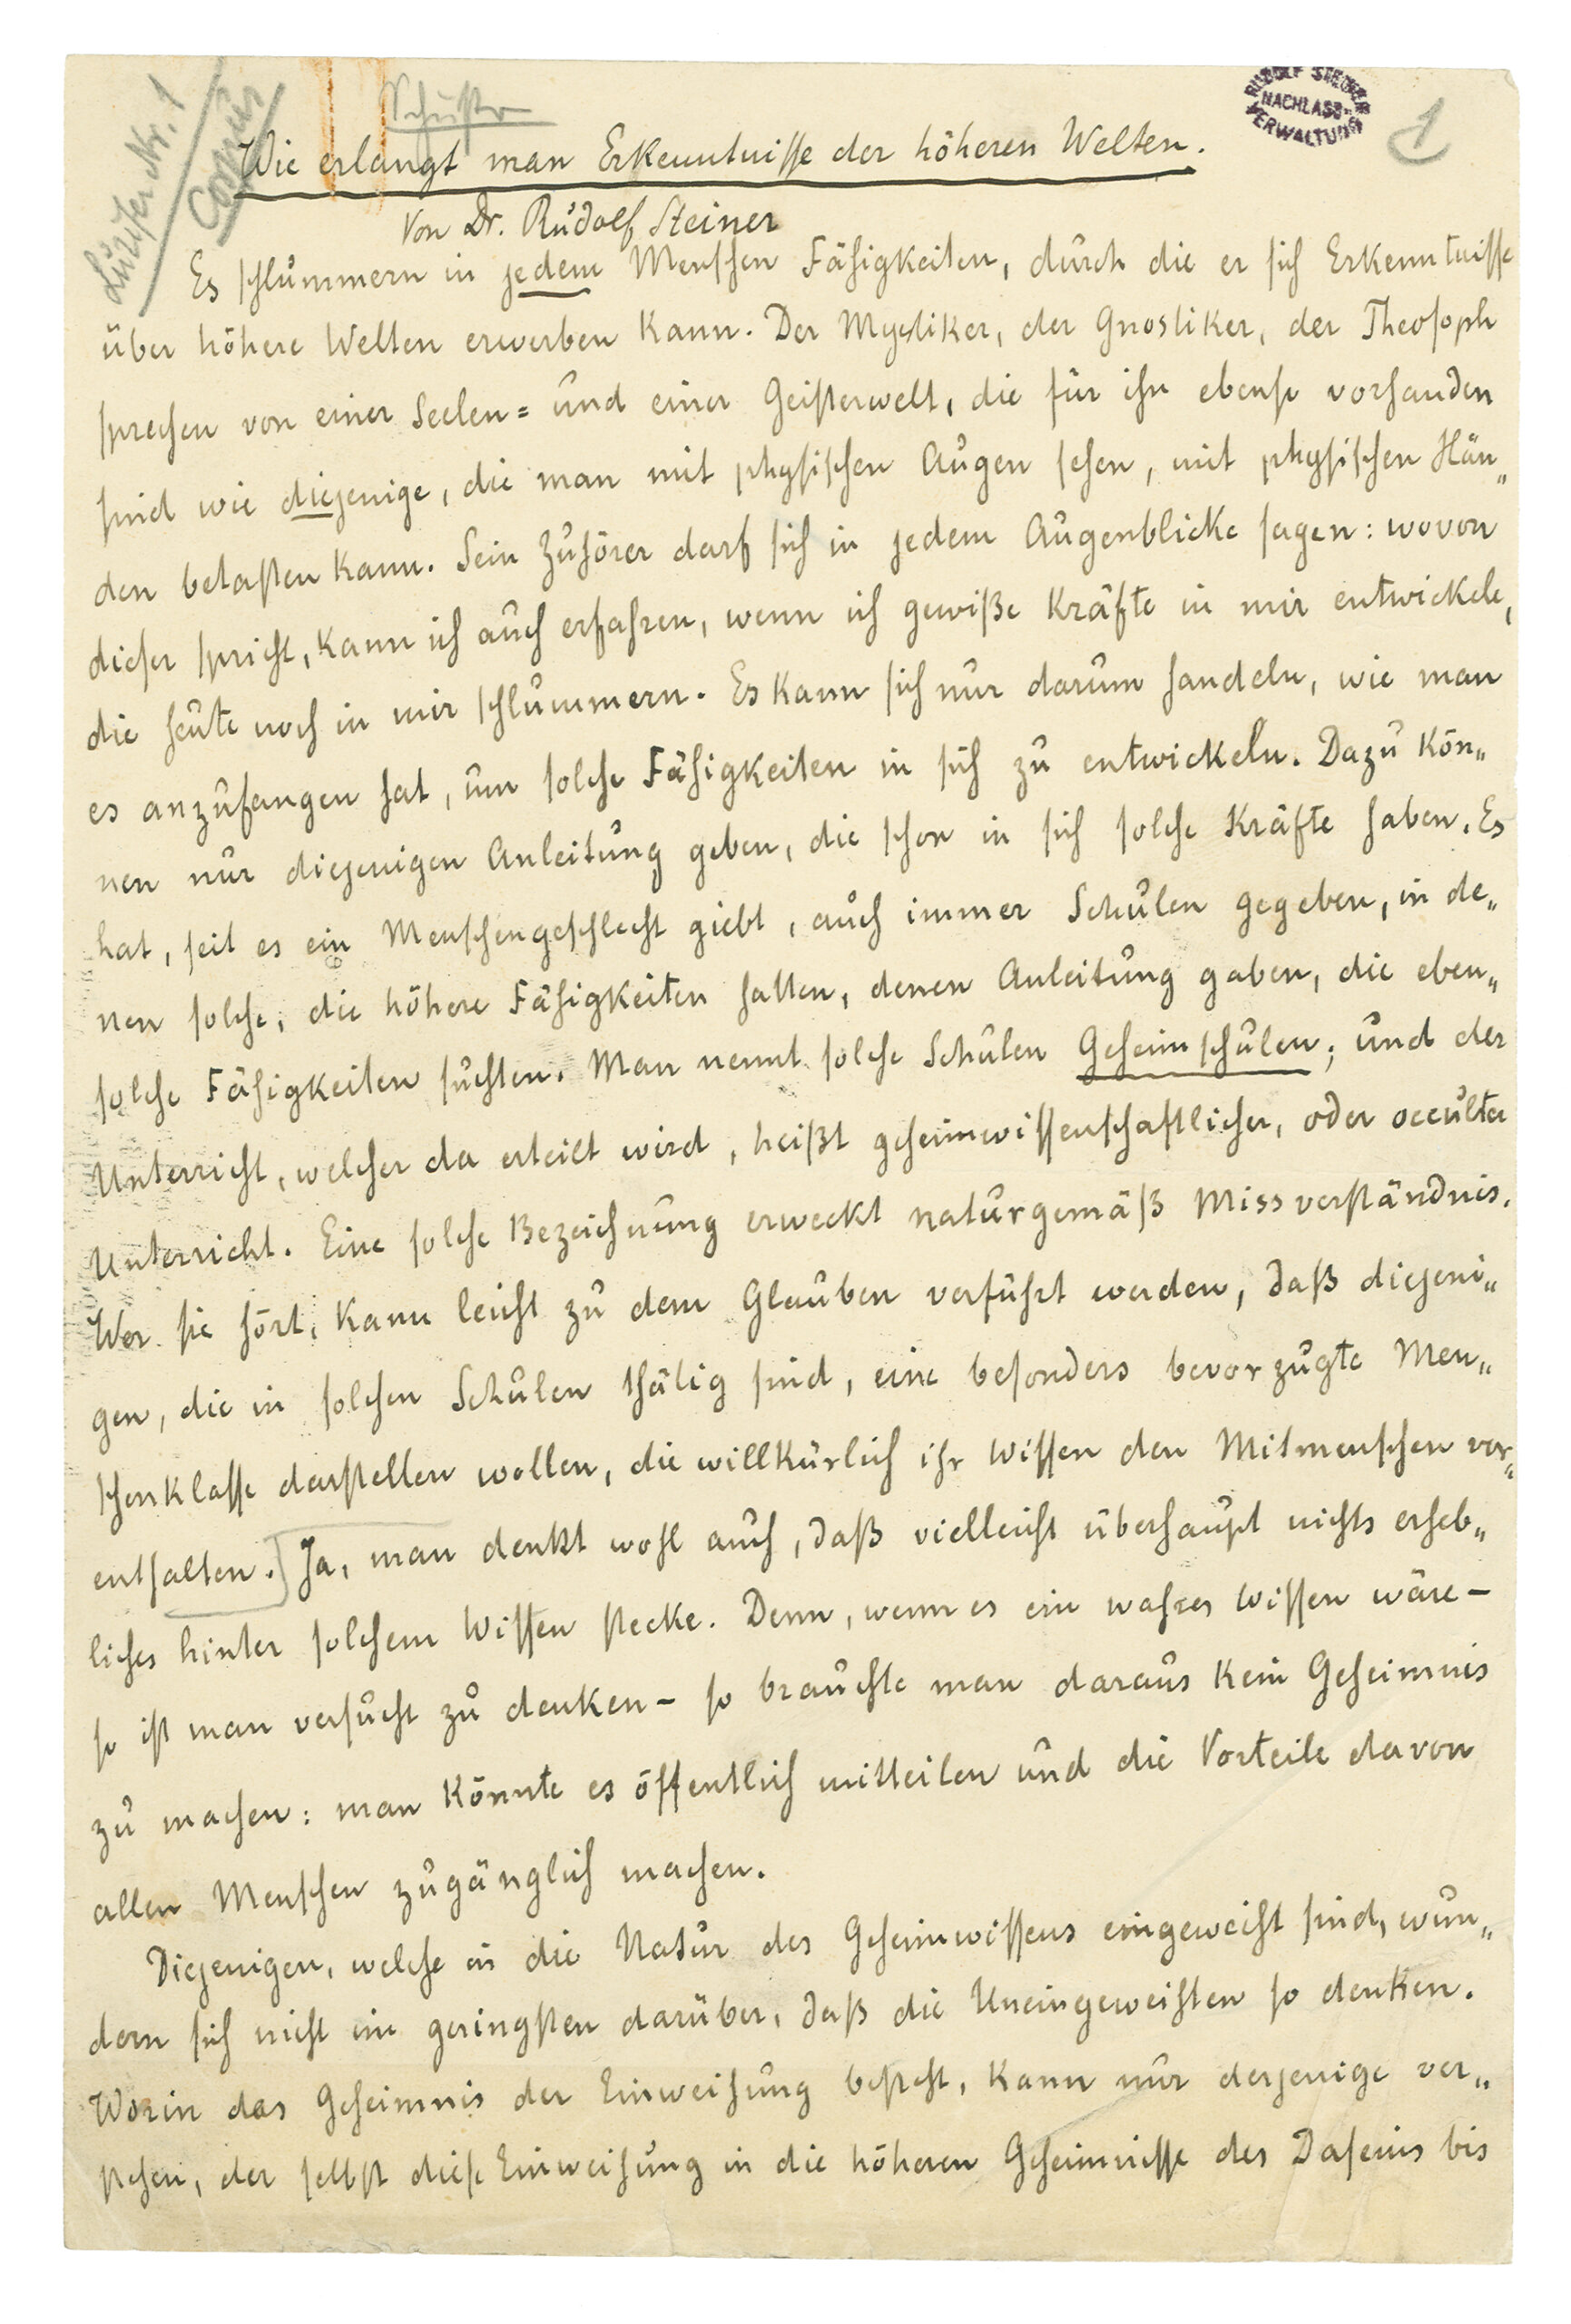 Luzifer Nr. 1
Corpus
Schuster
RUDOLF STEINER
NACHLASS-
VERWALTUNG
1
Wie erlangt man Erkenntnisse der höheren Welten.
Von Dr. Rudolf Steiner
Es schlummern in jedem Menschen Fähigkeiten, durch die er sich Erkenntnisse
über höhere Welten erwerben kann. Der Mystiker, der Gnostiker, der Theosoph
sprechen von einer Seelen= und einer Geisterwelt, die für ihn ebenso vorhanden
sind wie diejenige, die man mit physischen Augen sehen, mit physischen Hän„
den betasten kann. Sein Zuhörer darf sich in jedem Augenblicke sagen: wovon
dieser spricht, kann ich auch erfahren, wenn ich gewiße Kräfte in mir entwickele,
die heute noch in mir schlummern. Es kann sich nur darum handeln, wie man
es anzufangen hat, um solche Fähigkeiten in sich zu entwickeln. Dazu kön„
nen nur diejenigen Anleitung geben, die schon in sich solche Kräfte haben. Es
hat, seit es ein Menschengeschlecht giebt, auch immer Schulen gegeben, in de„
nen solche, die höhere Fähigkeiten hatten, denen Anleitung gaben, die eben„
solche Fähigkeiten suchten. Man nennt solche Schulen Geheimschulen; und der
Unterricht, welcher da erteilt wird, heißt geheimwissenschaftlicher, oder occulter
Unterricht. Eine solche Bezeichnung erweckt naturgemäß Missverständnis.
Wer sie hört, kann leicht zu dem Glauben verführt werden, daß diejeni„
gen, die in solchen Schulen thätig sind, eine besonders bevorzugte Men„
schenklasse darstellen wollen, die willkürlich ihr Wissen den Mitmenschen vor„
enthalten. Ja, man denkt wohl auch, daß vielleicht überhaupt nichts erheb„
liches hinter solchem Wissen stecke. Denn, wenn es ein wahres Wissen wäre –
so ist man versucht zu denken – so brauchte man daraus kein Geheimnis
zu machen: man könnte es öffentlich mitteilen und die Vorteile davon
allen Menschen zugänglich machen.
Diejenigen, welche in die Natur des Geheimwissens eingeweiht sind, wun„
dern sich nicht im geringsten darüber, daß die Uneingeweihten so denken.
Worin das Geheimnis der Einweihung besteht, kann nur derjenige ver„
stehen, der selbst diese Einweihung in die höheren Geheimnisse des Daseins bis